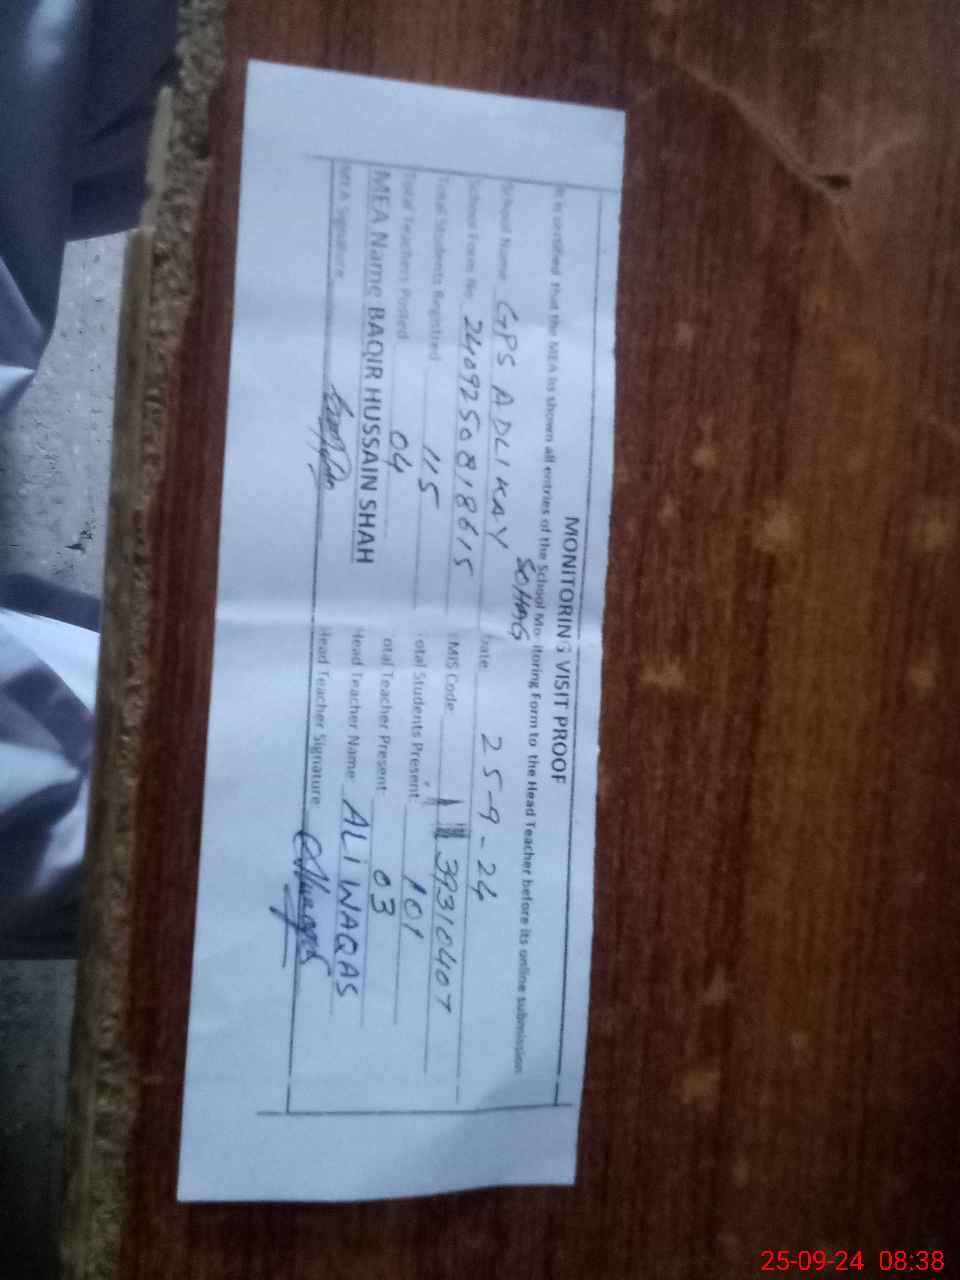 MONITORING VISIT PROOF
It is certified that the MEA to shown all entries of the School Monitoring Form to the Head Teacher before its online submission
School Name: GPS ADLIKAY SOHAG Date: 25-9-24
School Form No. 240925081861S EMIS Code: 39310407
Total Students Registred 115 Total Students Present: 101
Total Teachers Posted 04 Total Teacher Present: 03
MEA Name BAQIR HUSSAIN SHAH Head Teacher Name: ALI WAQAS
MEA Signature Head Teacher Signature:
25-09-24 08:38